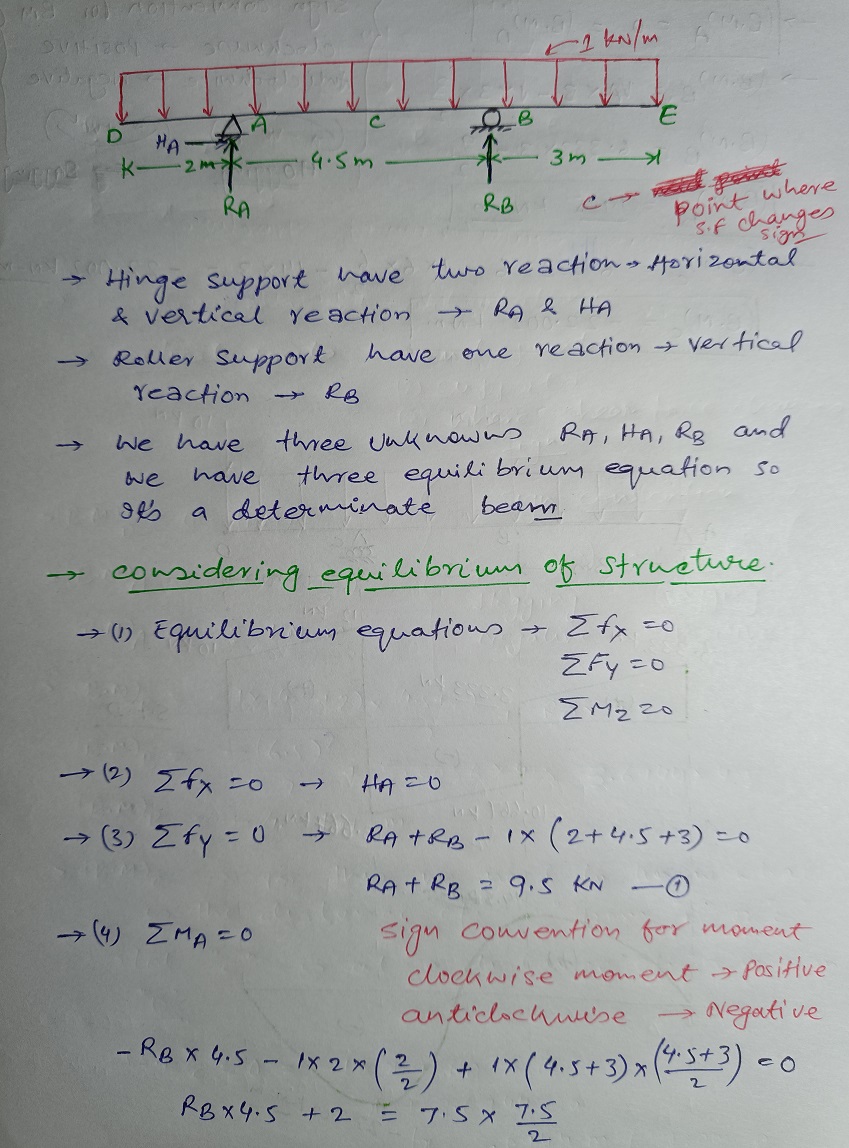 1 KN/m
D
HA
A
C
B
E
2m
4.5m
3m
RA
RB
C → point where
S.F changes
sign
→ Hinge support have two reaction → Horizontal
& vertical reaction → RA & HA
→ Roller support have one reaction → vertical
reaction → RB
→ We have three unknowns RA, HA, RB and
we have three equilibrium equation so
It's a determinate beam
→ considering equilibrium of structure.
→ (1) Equilibrium equations → Σfx = 0
ΣFy = 0
ΣMz = 0
→ (2) Σfx = 0 → HA = 0
→ (3) Σfy = 0 → RA + RB - 1x (2+4.5+3) = 0
RA + RB = 9.5 KN — ①
→ (4) ΣMA = 0 sign convention for moment
clockwise moment → Positive
anticlockwise → Negative
- RB x 4.5 - 1x2x(2/2) + 1x(4.5+3)x(4.5+3/2) = 0
RB x 4.5 + 2 = 7.5 x 7.5/2